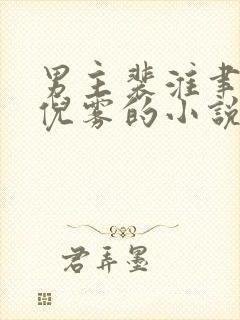 男主裴淮聿
倪雾的小说
君弄墨